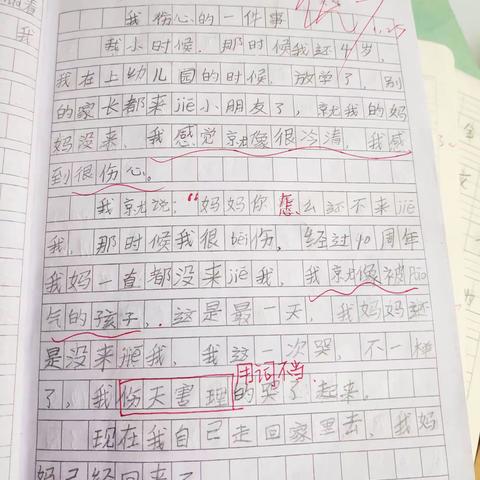 我伤心的一件事
我小时候,那时候我还4岁,
我在上幼儿园的时候,放学了,别
的家长都来jiē小朋友了,就我的妈
妈没来,我感觉就像很冷清,我感
到很伤心。
我就说:“妈妈你怎么还不来jiē
我,那时候我很bēi伤,经过40周年
我妈一直都没来jiē我,我就像被Pāo
气的孩子,这是最一天,我妈妈还
是没来顺我,我这一次哭,不一样
用词不当
了,我伤天害理的哭了起来。
现在我自己走回家里去,我妈
妈已经回来了
1.25